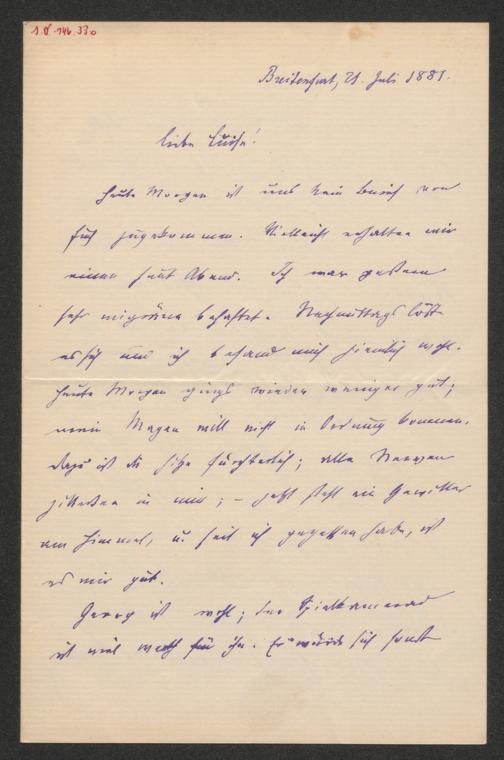 Breitenfurt, 21. Juli 1881.
Liebe Luise!
Heute Morgen ist uns kein Brief von
zugekommen. Vielleicht erhalten wir
einen heut Abend. Ich war gestern
sehr migräne behaftet. Nachmittags löste
es sich und ich befand mich ziemlich wohl.
Heute Morgen gings wieder weniger gut;
mein Magen will nicht in Ordnung kommen.
Dazu ist die Hize fürchterlich; alle Nerven
zitterten in mir; – jetzt steht ein Gewitter
am Himmel, u. seit ich gegessen habe, ist
es mir gut.
Georg ist wohl; der Spielkamerad
ist viel werth für ihn. Er würde sich sonst